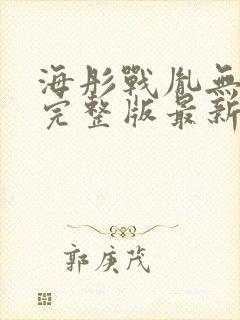 海彤戰胤無
完整版最新
郭庚茂